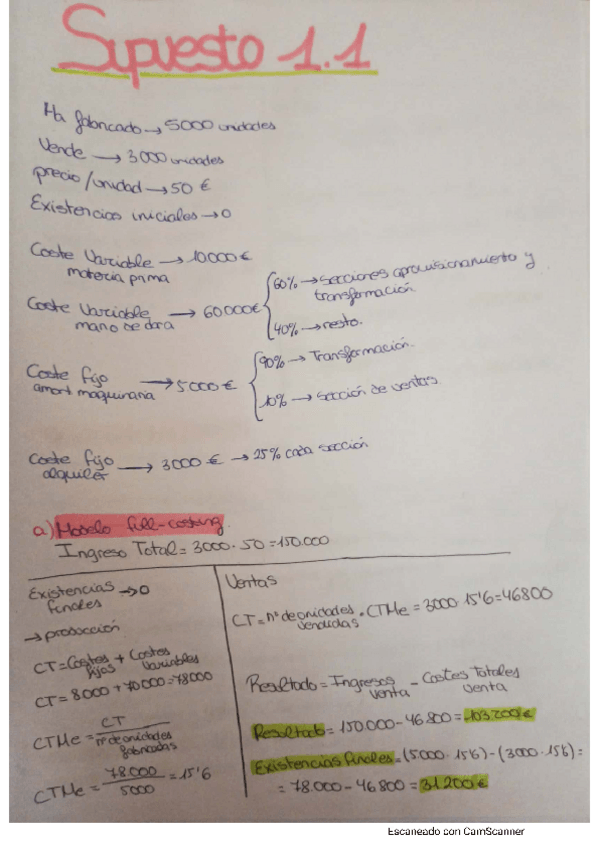 Supuesto 1.1
Ha fabricado → 5000 unidades
Vende → 3000 unidades
precio/unidad → 50 €
Existencias iniciales → 0
Coste Variable materia prima → 10000 €
Coste Variable mano de obra → 60000€
60% → secciones aprovisionamiento y transformación.
40% → resto.
Coste fijo amort maquinaria → 5000 €
90% → Transformación.
10% → sección de ventas.
Coste fijo alquiler → 3000 € → 25% cada sección
a) Modelo full-costing
Ingreso Total = 3000 · 50 = 150.000
Existencias finales → 0
→ producción
CT = Costes fijos + Costes variables
CT = 8000 + 70000 = 78000
CTMe = CT / nº de unidades fabricadas
CTMe = 78.000 / 5000 = 15'6
Ventas
CT = nº de unidades vendidas · CTMe = 3000 · 15'6 = 46800
Resultado = Ingresos venta - Costes Totales venta
Resultado = 150.000 - 46.800 = 103.200€
Existencias finales = (5000 · 15'6) - (3000 · 15'6) =
= 78.000 - 46.800 = 31.200 €
Escaneado con CamScanner